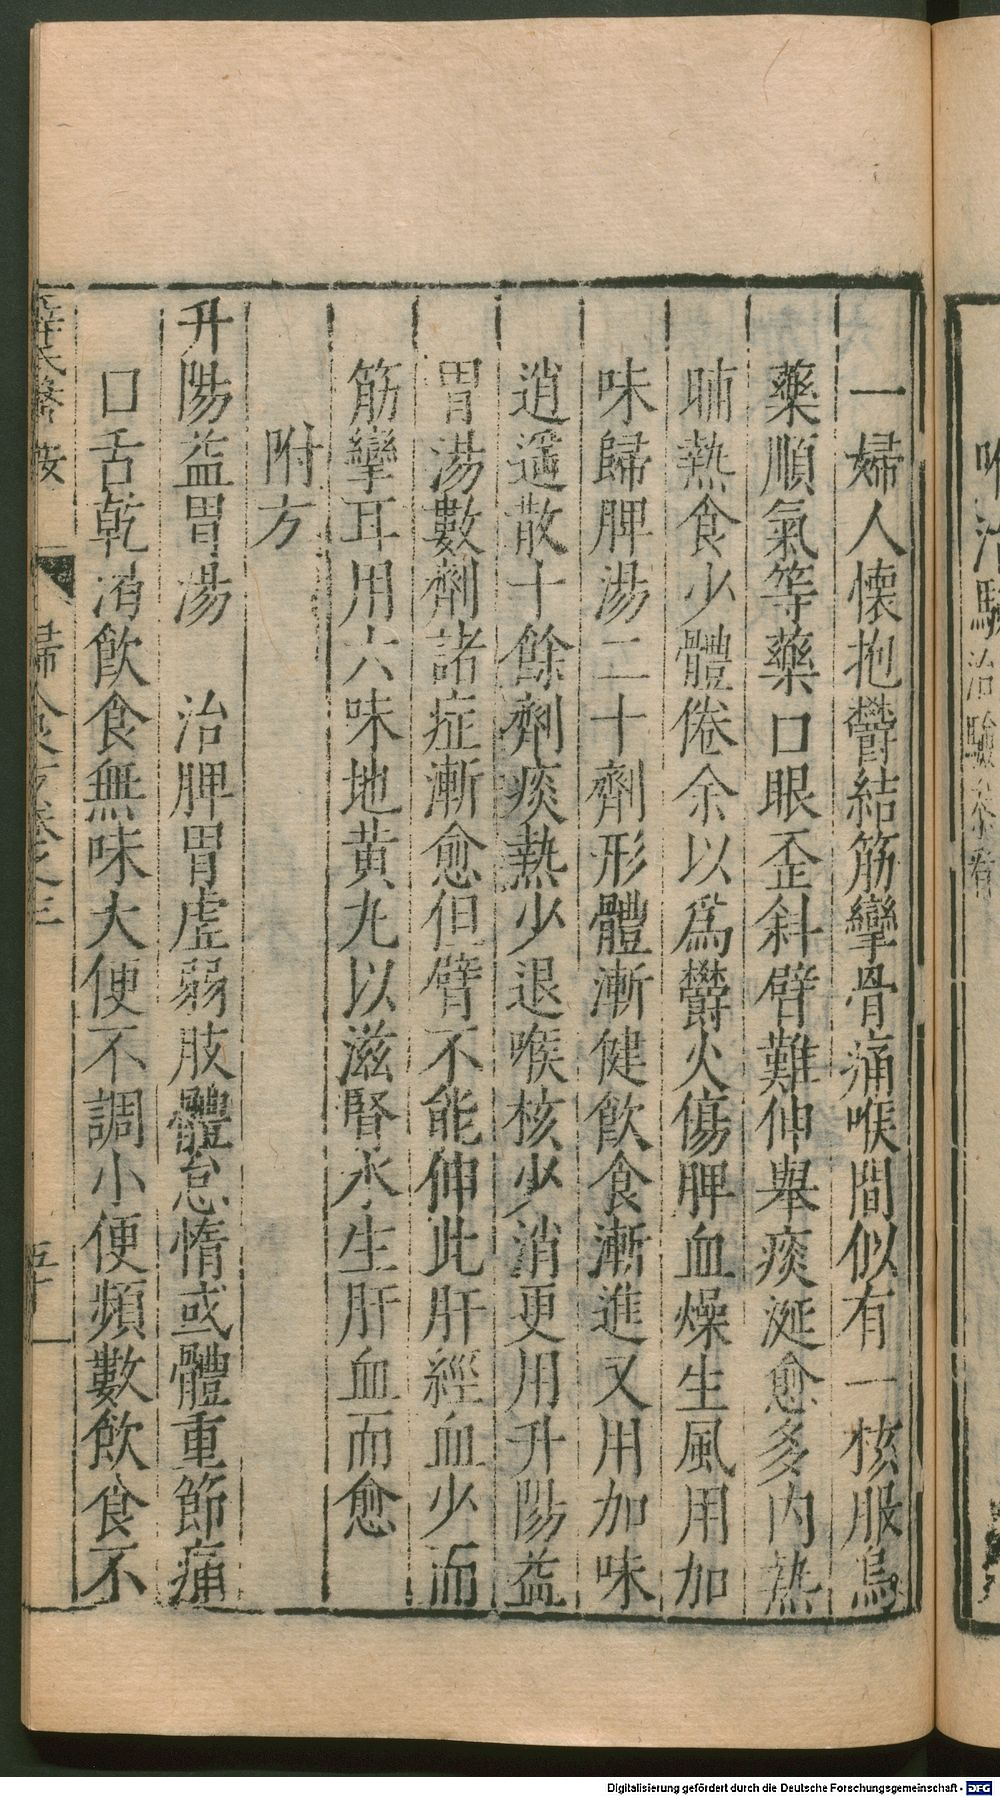 一婦人懷抱鬱結筋攣骨痛喉間似有一核服烏
藥順氣等藥口眼歪斜臂難伸舉痰涎愈多內熱
晡熱食少體倦余以為鬱火傷脾血燥生風用加
味歸脾湯二十劑形體漸健飲食漸進又用加味
逍遥散十餘劑痰熱少退喉核少消更用升陽益
胃湯數劑諸症漸愈但臂不能伸此肝經血少而
筋攣耳用六味地黃丸以滋腎水生肝血而愈
附方
升陽益胃湯　治脾胃虛弱肢體怠惰或體重節痛
口舌乾渴飲食無味大便不調小便頻數飲食不
薛氏醫按　婦人良方卷之三　五十一
治驗治驗參看
Digitalisierung gefördert durch die Deutsche Forschungsgemeinschaft - DFG